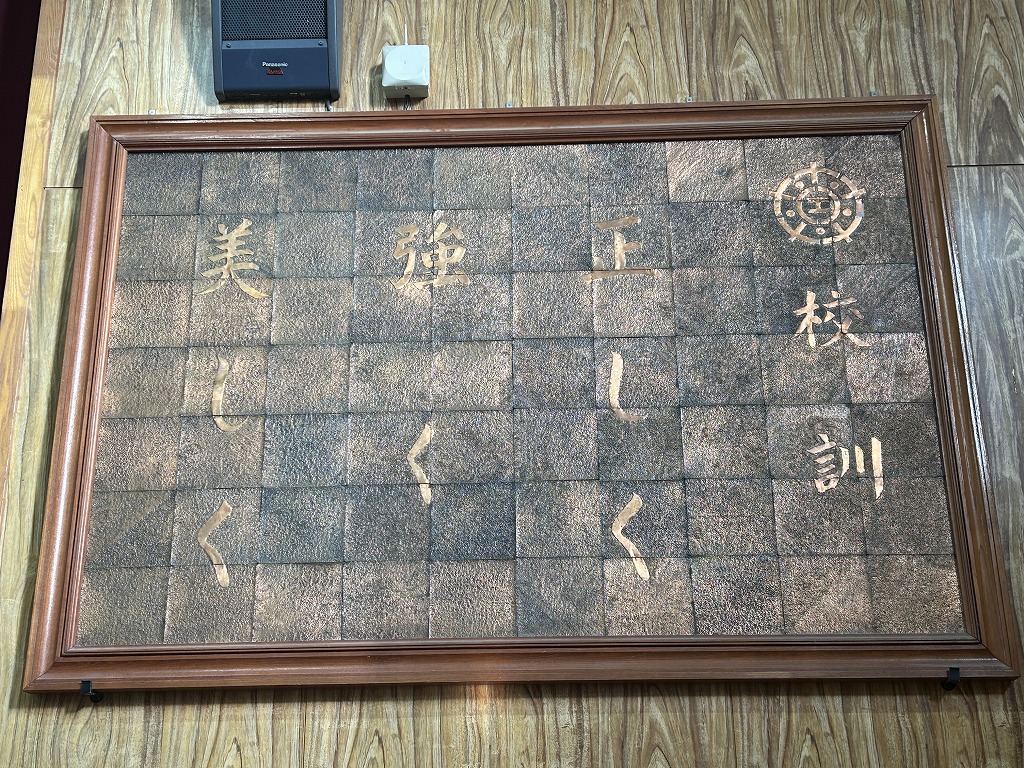 校訓
正しく
強く
美しく
Panasonic